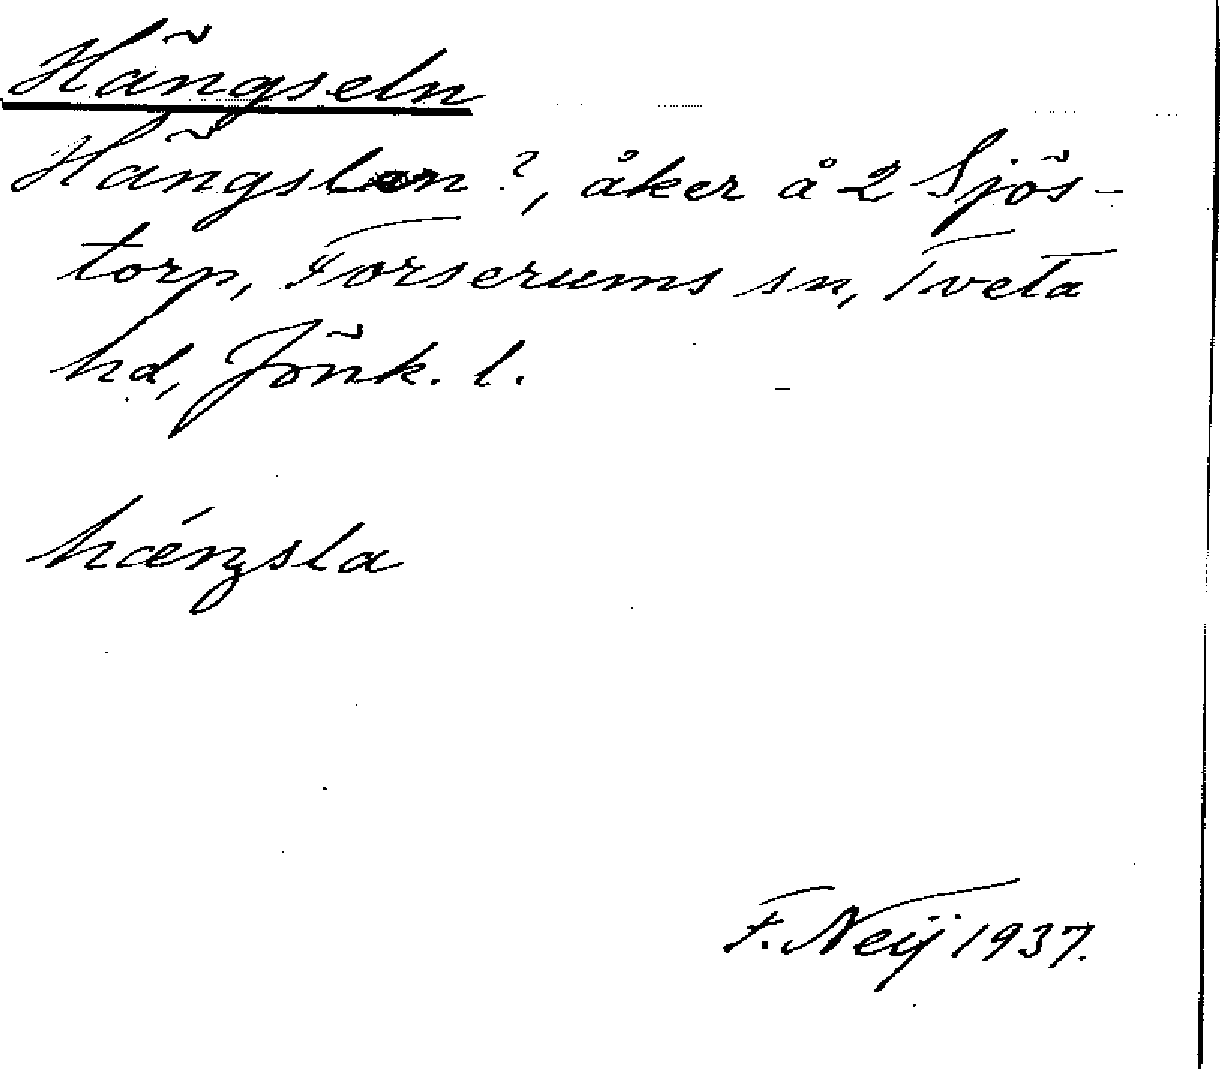 Hängseln
Hängslen ?, åker å 2 Sjös-
torp, Forserums sn, Tveta
hd, Jönk. l.
hǽŋsla
F. Neij 1937.